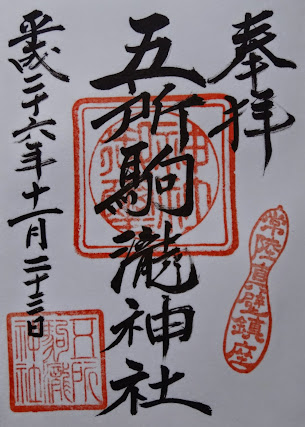 奉拝
常陸真壁鎮座
五所駒瀧神社
平成二十六年十一月二十三日
五所駒瀧神社